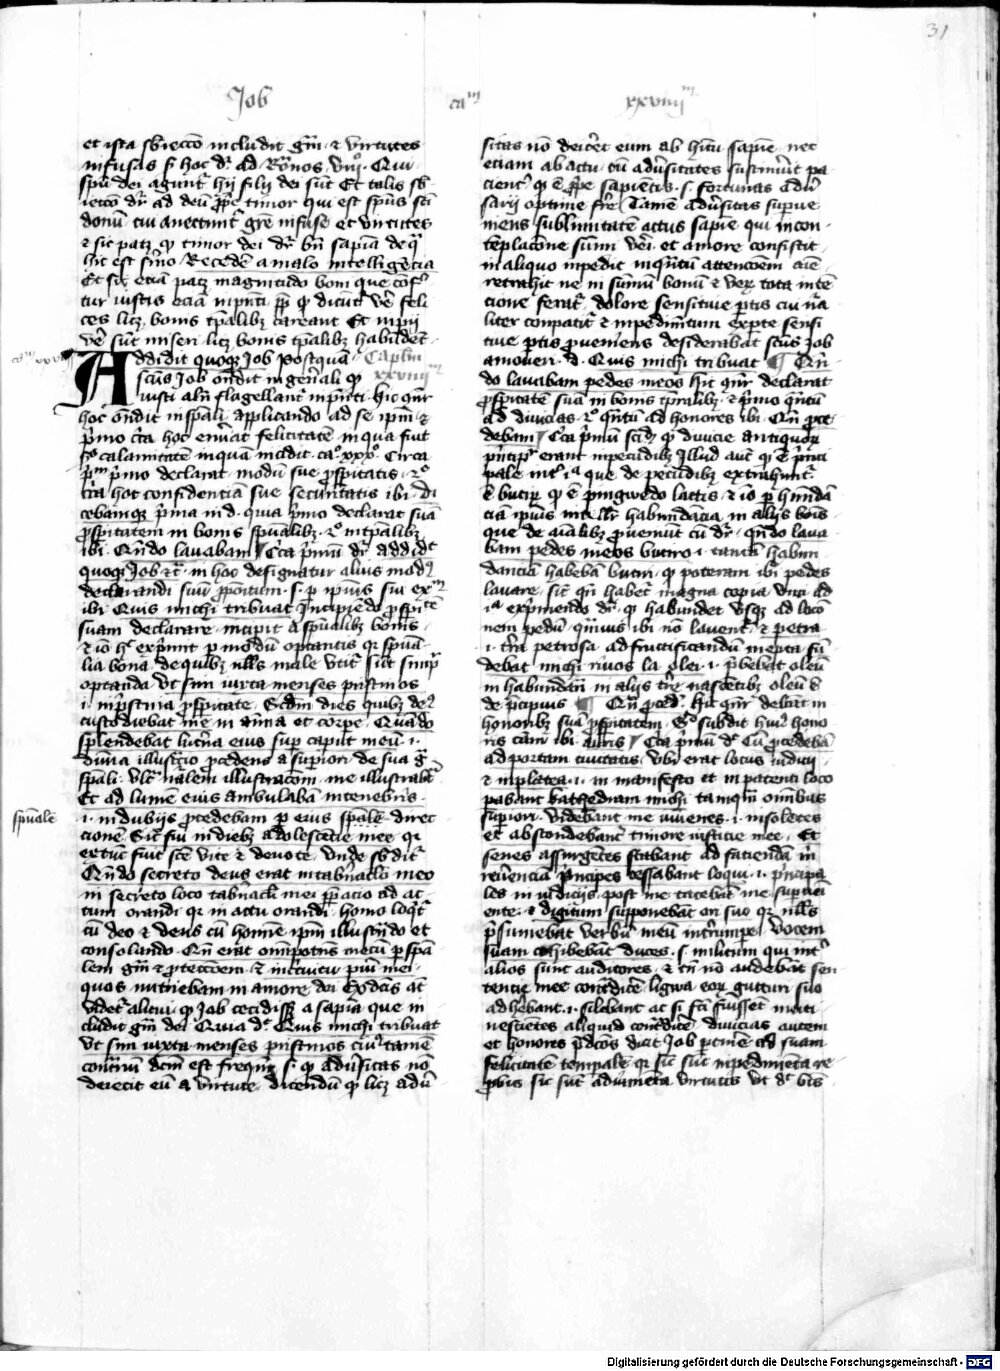 31
Job caᵐ xxviiiiᵐ
et ista sbiectio includit gra̅m & virtutes
infusas sʒ hoc dr̅ ad Ro̅nos viiiº Qui
spu̅ dei agunt̅ hij filij dei su̅t Et talis sb
iectio dr̅ ad deu̅ p̅p̅e timor qui est spu̅s sc̅i
donu̅ cui anectunt̅ gr̅e infuse et virtutes
& sic patʒ ꝙ timor dei dr̅ bn̅ sapi̅a de q̅
hic est smo Recede̅ a malo intellige̅cia
Et sic etia̅ patʒ magnitudo boni que
tur iustis
ces licʒ bonis tp̅alibʒ careant Et impij
ve̅ su̅t miseri licʒ bonis tp̅alibʒ habu̅de̅t
Addidit quoqʒ Job postqua̅ Caplm
sc̅us Job on̅dit in gen̅ali ꝙ xxviiiiᵐ
iusti alin̅ flagellant̅ inp̅nti hic qn̅r
hoc on̅dit in sp̅ali applicando ad se ip̅m &
p̅mo c̅ca hoc felicitate̅ in qua fuit
2º calamitate̅ in qua incidit caº xxxº Circa
p̅m p̅mo declarat modu̅ sue p̅spitatis 2º
c̅ca hoc confidencia̅ sue securitatis ibi di
ceba̅qʒ p̅ma in d. quia p̅mo declarat sua̅
p̅spitatem in bonis sp̅ualibʒ 2º in tp̅alibʒ
ibi Qn̅do lavabam C̅ca p̅mu̅ dr̅ addidᵗ
quoqʒ Job &c̅ in hoc designatur alius modꝰ
declarandi suu̅ p̅positum s. p ip̅ius
ibi Quis michi tribuat Incipie̅do p̅spitᵉ̅
suam declarare incipit a sp̅ualibʒ bonis
& io̅ hᵉ exp̅mit p modu̅ optantis qr sp̅ua
lia bona de quibʒ nll̅s male vtit̅ su̅t sim̅p
optanda vt sim iuxta menses pristinos
i. in p̅stina p̅spitate Scdm dies quibʒ deꝰ
custodiebat me in a̅ima et corp̅e Qua̅do
splendebat luc̅na eius sup caput meu̅ i.
diuina illust̅cio p̅cedens a supiori de sua g̅
sp̅ali vlt̅ na̅lem illustraco̅m me illustrabat̅
Et ad lumen eius ambulaba̅ in tenebris
spu̅ale
i. in dubijs p̅cedebam p eius sp̅ale̅ direc
cione̅ Sic̅ fui in diebʒ adolescencie mee qr
ex tu̅c fuit sc̅e vite & deuote vnde sb dit̅
Qn̅do secreto deus erat in tab̅naclo meo
in secreto loco tab̅nacli mei p̅pacio ad ac
tum orandi qr in actu orandi homo loqᵗ̅
cu̅ deo & deus cu̅ homi̅e ip̅m illust̅ndo et
consolando Qn̅ erat om̅ipotn̅s mecu̅ p sp̅a
lem gr̅m & p̅teccio̅em & in circuitu pu̅i mei
quos nutriebam in amore dei Ex dc̅is at̅
videt̅ alicui ꝙ Job cecidissʒ a sapi̅a que in
cludit gr̅m dei Quia d̅ Quis michi tribuat
vt sim iuxta menses pristinos cuiꝰ tame̅
contr̅iu̅ dc̅m est freque̅n̅ s. ꝙ adu̅sitas no̅
deiecit eu̅ a virtute dicendu̅ ꝙ licʒ adu̅
sitas no̅ deice̅t eum ab hitu sapi̅e nec
etiam ab actu cu̅ adu̅sitates sustinuit pa
cient̅ qr e̅ p̅p̅e sapie̅tis s. fortunas adu̅
sarij optime fr̅e Tame̅ adu̅sitas supue
niens sublimitate̅ actus sapi̅e qui in con
te̅placo̅ne su̅mi ve̅i et amore consistit
in aliquo inpedit inqn̅tu̅ attencio̅em a̅ie
retrahit ne in summu̅ bonu̅ & veʒ tota inte̅
cione ferat̅ dolore sensitiue p̅tis cui na̅
liter conpatit̅ & inpedime̅tum ex p̅te sensi
tiue p̅tis p̅ueniens desiderabat sc̅us Job
amoueri d. Quis michi tribuat Qn̅
do lavabam pedes meos hic qn̅r declarat
p̅spitate̅ sua̅ in bonis tp̅ralibʒ & p̅mo qn̅tu̅
ad diuicias 2º qn̅tu̅ ad honores ibi Qn̅ p̅ce
debam C̅ca p̅mu̅ scid̅ ꝙ diuicie antiquoꝝ
p̅ncipꝰ erant in pecudibʒ Illud aut̅ qd e̅ p̅nci
pale int̅ ia que de pecudibʒ extrahunt̅
e̅ butiꝝ qd e̅ pingwedo lactis & io̅ p habu̅da̅
cia̅ ip̅ius intelle̅ habundancia in alijs bo̅is
que de a̅ialibʒ p̅ueniut cu̅ dr̅ Qn̅do laua
bam pedes meos butiro i. tanta̅ habun
dancia̅ habeba̅ butiri ꝙ poteram ibi pedes
lavare sic̅ qn̅ habet̅ magna copia vini ad
ia exp̅mendo dr̅ qd habundet vsqʒ ad loco̅
nem pedu̅ qu̅iuis ibi no̅ lauent̅ & petra
i. tr̅a petrosa ad fructificandu̅ inepta fu̅
debat michi riuos la olei i. p̅bebat oleu̅
in habundan̅ in alijs tr̅e nascentibʒ oleu̅ e̅
de p̅cipuis Qn̅ p̅ced̅ Hic qn̅r declarat in
honoribʒ sua̅ p̅spitatem 2º subdit huiꝰ hono
ris cam̅ ibi auris C̅ca p̅mu̅ d̅ Cu̅ p̅cedeba̅
ad portam ciuitatis vbi erat locus iudicij
& in platea i. in manifesto et in patenti loco
pabant kathedram michi tamqm̅ om̅ibus
supiori Videbant me iuuenes i. insolentes
et abscondebant̅ timore iusticie mee Et
senes assurge̅tes stabant ad faciend̅a̅ mi
reuencia̅ principes cessabant loqui i. p̅ncipa
les in iudicijs post me taceba̅t me
ente & digitum supponeba̅t ori suo qr nll̅s
p̅sumebat verbu̅ meu̅ int̅rumpe̅ Vocem
suam cohibebat duces s. militum qui int̅
alios sunt auditores & tn̅ no̅ audeba̅t sen
tencie mee cont̅dice̅ ligwa eoꝝ gutturi suo
adhebant i. silebant ac si fc̅i fuisset muti
nescie̅tes aliquid cont̅dice̅ diuicias autem
et honores p̅dc̅os dicit Job p̅tine̅ ad suam
felicitate̅ tempale qr sic̅ su̅t inpedime̅ta re
p̅bis sic su̅t adiume̅ta virtutis vt d̅
Digitalisierung gefördert durch die Deutsche Forschungsgemeinschaft - DFG